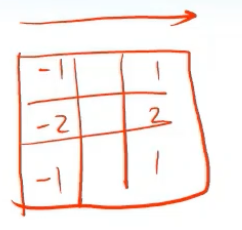 -1 1
-2 2
-1 1